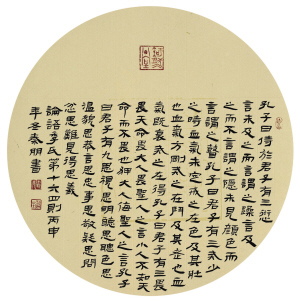 孔子曰侍於君子有三愆
言未及之而言謂之躁言及
之而不言謂之隱未見顏色而
言謂之瞽孔子曰君子有三戒少
之時血氣未定戒之在色及其壯
也血氣方剛戒之在鬥及其老也血
氣既衰戒之在得孔子曰君子有三畏
畏天命畏大人畏聖人之言小人不知天
命而不畏也狎大人侮聖人之言孔子
曰君子有九思視思明聽思聰色思
溫貌思恭言思忠事思敬疑思問
忿思難見得思義
論語季氏第十六四則丙申
年冬泰朋書